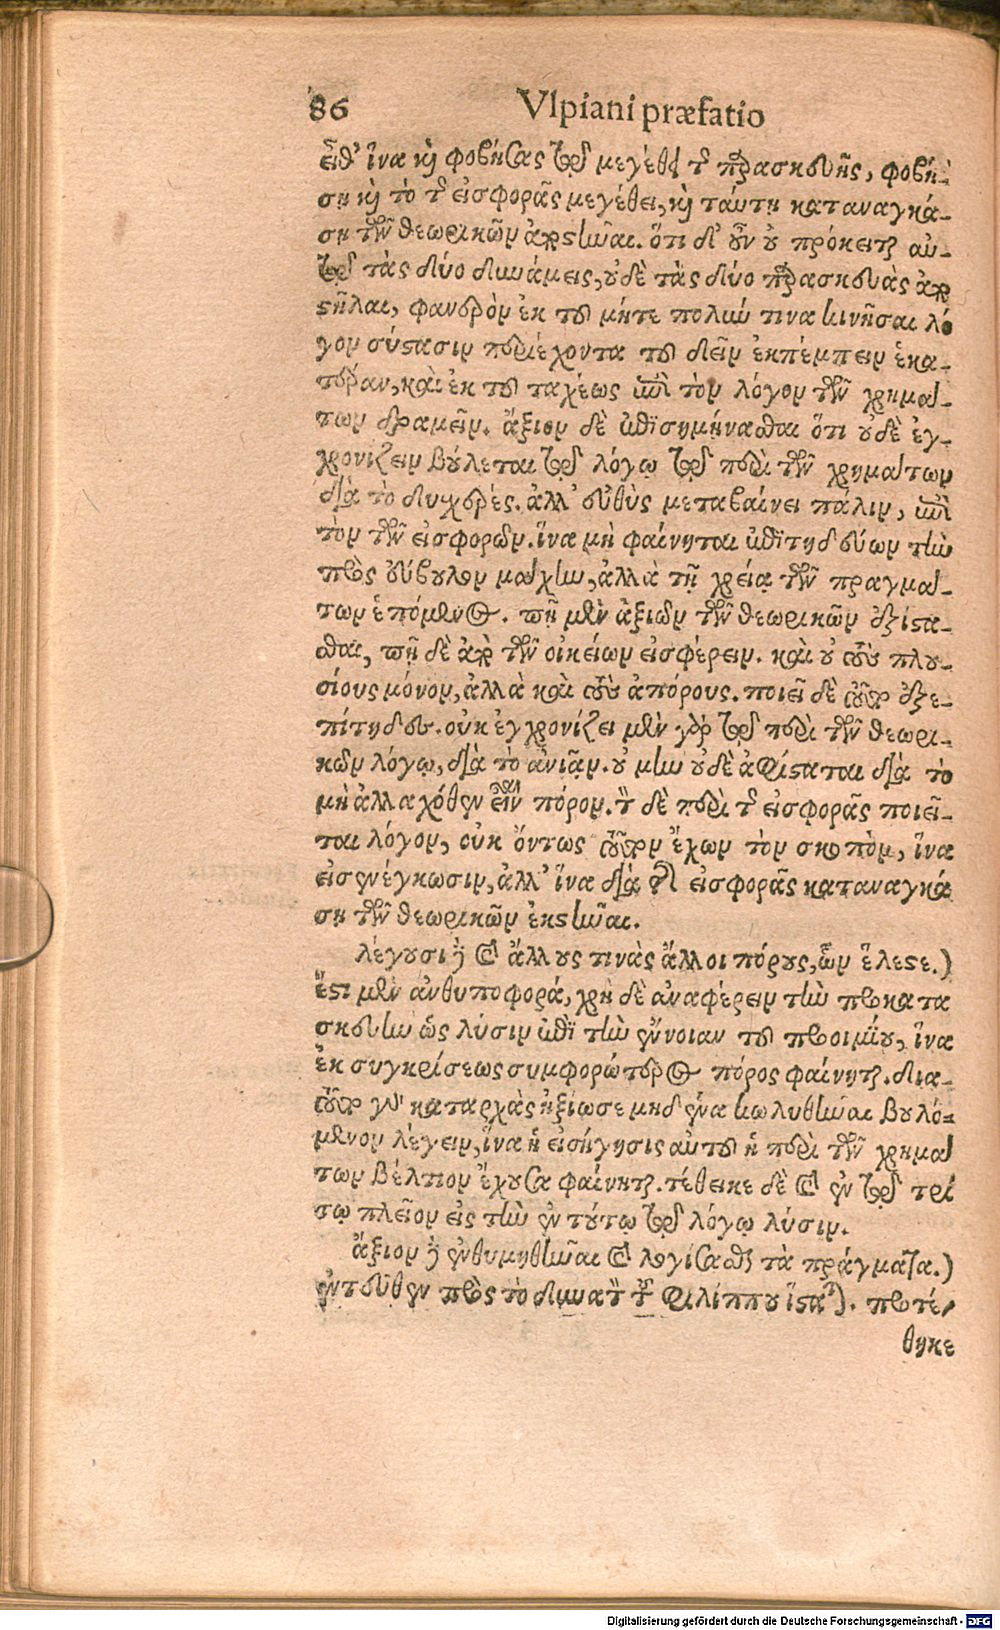 86 Vlpiani præfatio
εἶθ' ἵνα καὶ φοβήσας τῷ μεγέθει τῆς παρασκευῆς, φοβή-
σῃ καὶ τὸ τῆς εἰσφορᾶς μεγέθει, καὶ ταύτῃ καταναγκά-
σῃ τῶν θεωρικῶν ἀποστῆναι. ὅτι δ' οὖν οὐ πρόκειται αὐ-
τῷ τὰς δύο δυνάμεις, οὐδὲ τὰς δύο παρασκευὰς ἀπο
στεῖλαι, φανερὸν ἐκ τοῦ μήτε πολύν τινα κινῆσαι λό
γον σύστασιν περιέχοντα τοῦ δεῖν ἐκπέμπειν ἑκα-
τέραν, καὶ ἐκ τοῦ ταχέως ἐπὶ τὸν λόγον τῶν χρημά-
των δραμεῖν. ἄξιον δὲ ἐπισημήνασθαι ὅτι οὐδὲ ἐγ-
χρονίζειν βούλεται τῷ λόγῳ τῷ περὶ τῶν χρημάτων
διὰ τὸ δυσχερές. ἀλλ' εὐθὺς μεταβαίνει πάλιν, ἐπὶ
τὸν τῶν εἰσφορῶν. ἵνα μὴ φαίνηται ἐπιτηδεύων τὴν
πρὸς εὔβουλον μάχην, ἀλλὰ τῇ χρείᾳ τῶν πραγμά-
των ἑπόμενος. πῆ μὲν ἀξιῶν τῶν θεωρικῶν ἐξίστα-
σθαι, πῆ δὲ ἀπὸ τῶν οἰκείων εἰσφέρειν. καὶ οὐ τοὺς πλου-
σίους μόνον, ἀλλὰ καὶ τοὺς ἀπόρους. ποιεῖ δὲ τοῦτο ἐξε-
πίτηδες. οὐκ ἐγχρονίζει μὲν γὰρ τῷ περὶ τῶν θεωρι-
κῶν λόγῳ, διὰ τὸ ἀνιᾶν. οὐ μὴν οὐδὲ ἀφίσταται διὰ τὸ
μὴ ἀλλαχόθεν εἶναι πόρον. τὸν δὲ περὶ τῆς εἰσφορᾶς ποιεῖ-
ται λόγον, οὐκ ὄντως τοῦτον ἔχων τὸν σκοπὸν, ἵνα
εἰσενέγκωσιν, ἀλλ' ἵνα διὰ τῆς εἰσφορᾶς καταναγκά
σῃ τῶν θεωρικῶν ἐκστῆναι.
λέγουσι δὲ καὶ ἄλλους τινὰς ἄλλοι πόρους, ὧν ἕλεσθε.)
ἔστι μὲν ἀνθυποφορά, χρὴ δὲ ἀναφέρειν τὴν προκατα
σκευὴν ὡς λύσιν ἐπὶ τὴν ἔννοιαν τοῦ προοιμίου, ἵνα
ἐκ συγκρίσεως συμφορώτερος πόρος φαίνηται. δια-
τοῦτο γὰρ καταρχὰς ἠξίωσε μηδένα κωλυθῆναι βουλό-
μενον λέγειν, ἵνα ἡ εἰσήγησις αὐτοῦ ἡ περὶ τῶν χρημά
των βέλτιον ἔχουσα φαίνηται. τέθεικε δὲ καὶ ἐν τῷ τρί
τῳ πλεῖον εἰς τὴν ἐν τούτῳ τῷ λόγῳ λύσιν.
ἄξιον δὲ ἐνθυμηθῆναι καὶ λογίσασθαι τὰ πράγματα.)
ἐντεῦθεν πρὸς τὸ δυνατὸν τοῦ Φιλίππου ἵσταται. προτέ-
θηκε